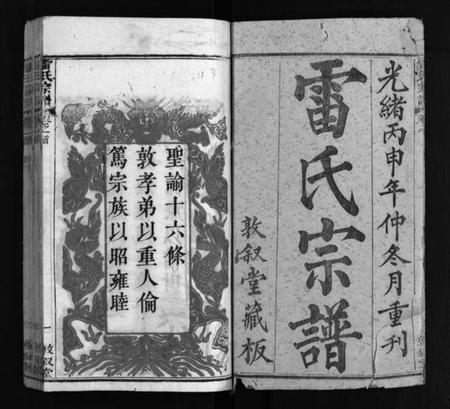 光緒丙申年仲冬月重刊
雷氏宗譜
敦叙堂藏板
聖諭十六條
敦孝弟以重人倫
篤宗族以昭雍睦
雷氏宗譜
一
敦叙堂